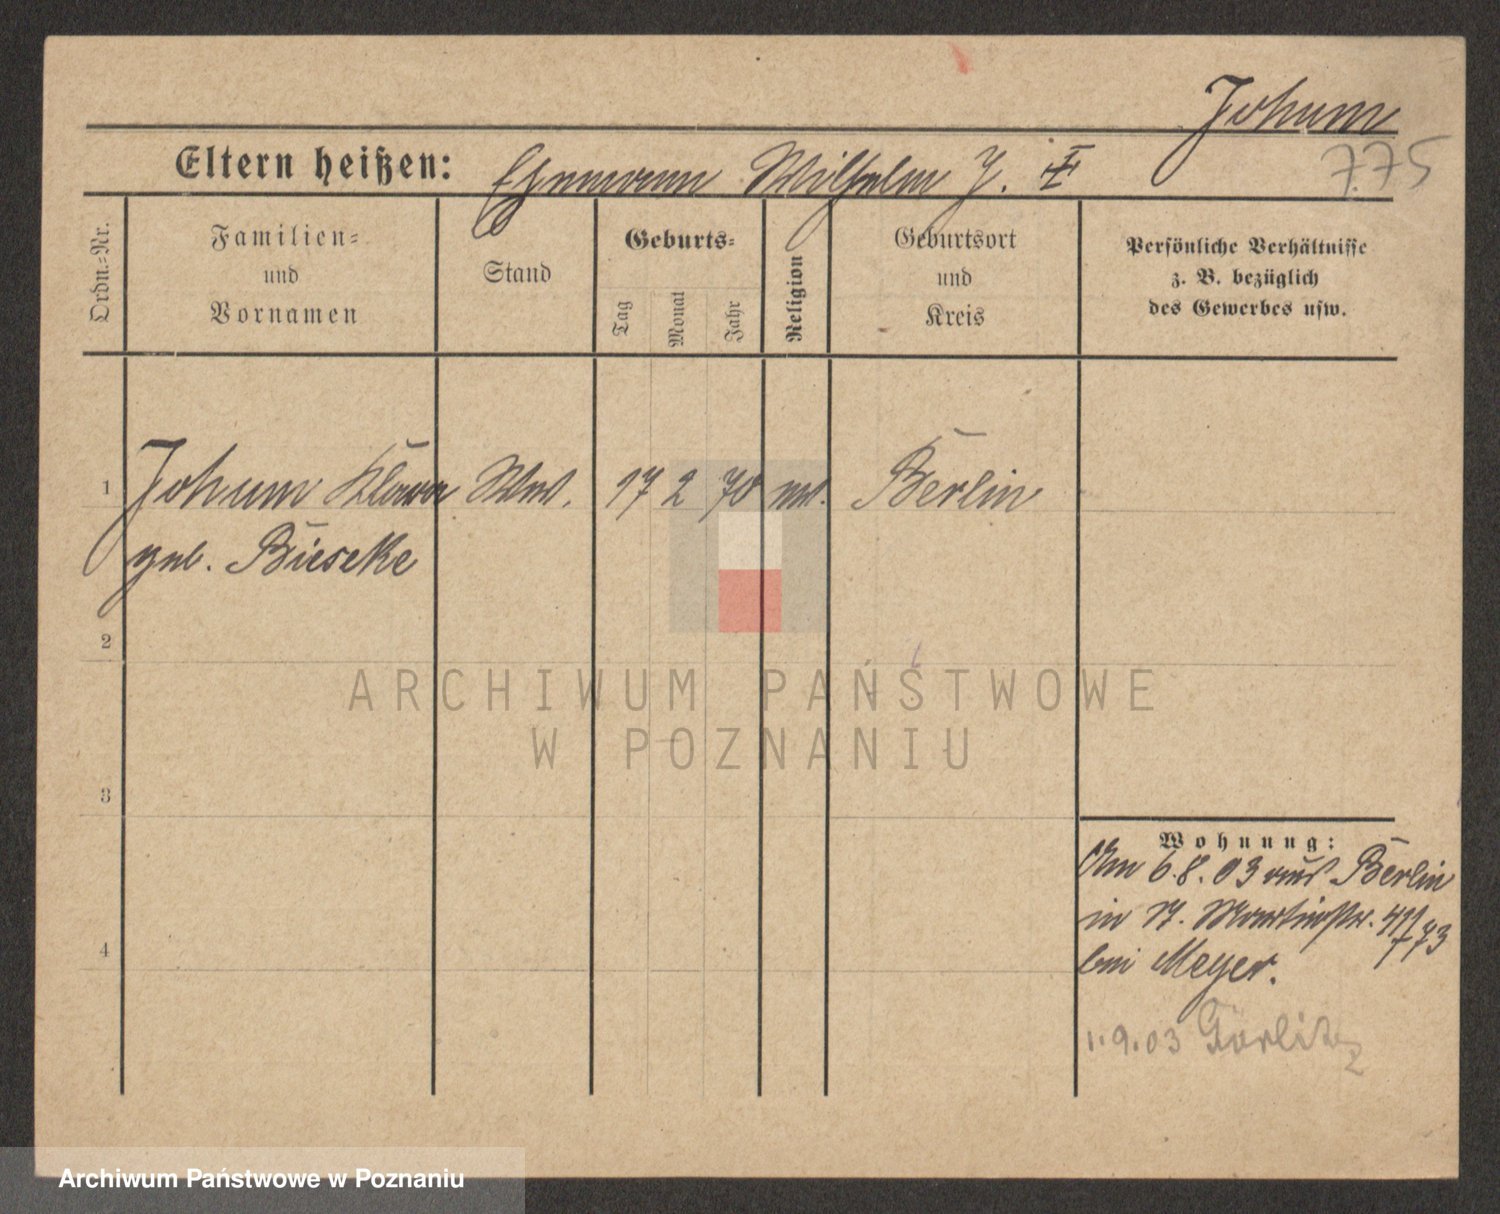 Johum
Eltern heißen: Ehemann Wilhelm J. ‡
775
Ordn.-Nr.
Familien-
und
Vornamen
Stand
Geburts-
Tag
Monat
Jahr
Religion
Geburtsort
und
Kreis
Persönliche Verhältnisse
z. B. bezüglich
des Gewerbes usw.
1 Johum Klara Ww. 17 2 70 ev. Berlin
geb. Biescke
2
3
4
Wohnung:
Am 6.8.03 aus Berlin
in St. Martinstr.
bei Meyer.
1.9.03 Görlitz
ARCHIWUM PAŃSTWOWE
W POZNANIU
Archiwum Państwowe w Poznaniu